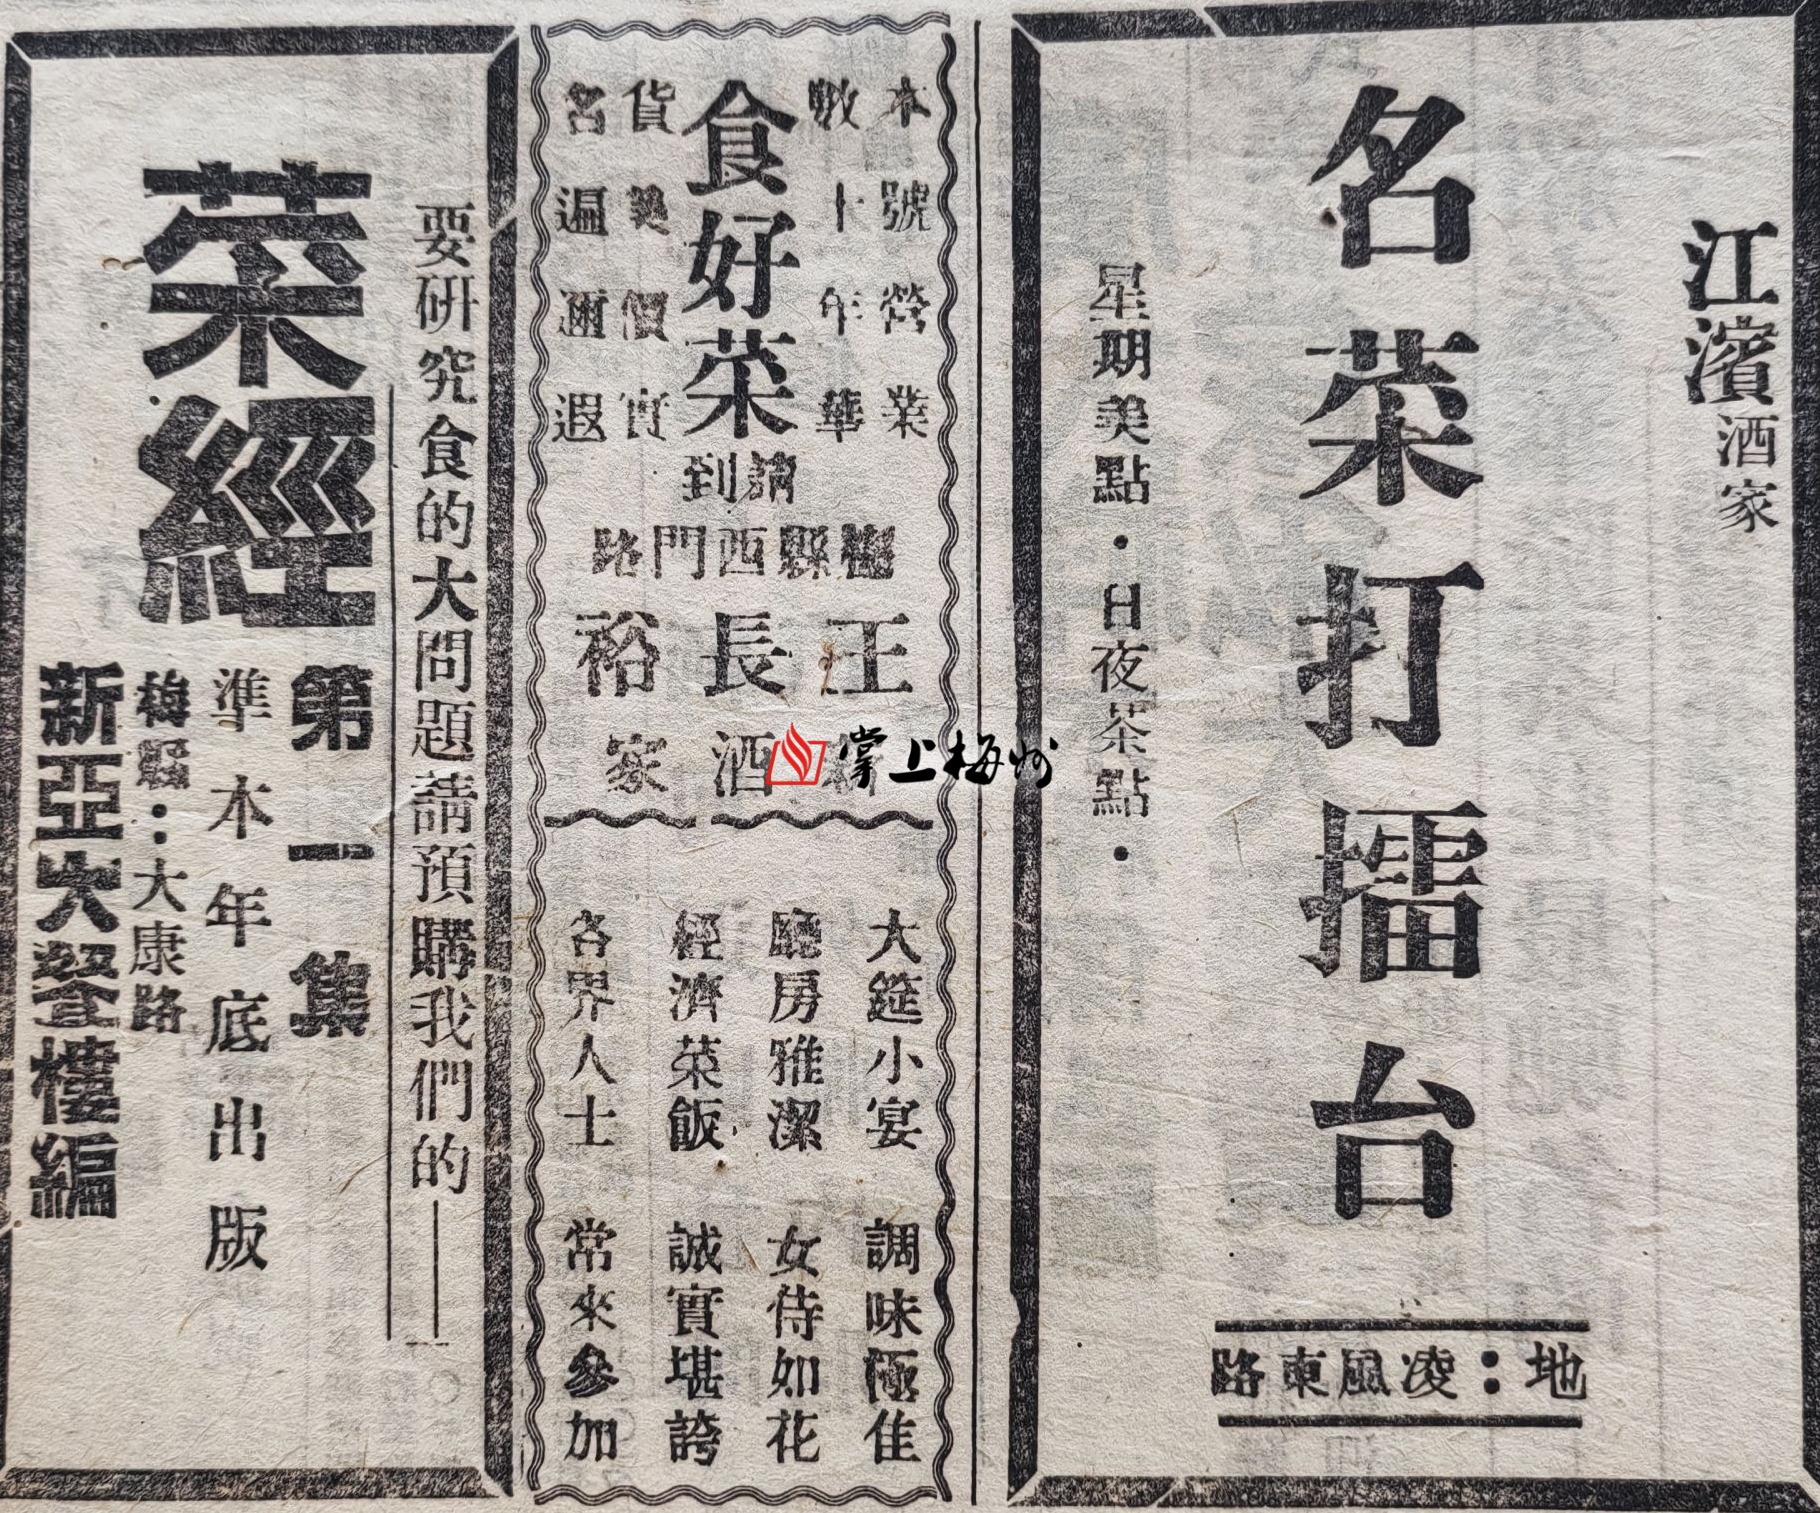 江濱酒家
名菜打擂台
星期美點・日夜茶點・
地：凌風東路
本號營業
數十年華
食好菜
貨美價實
名遍邇遐
請到
梅縣西門路
王長裕
酒家
掌上梅州
大筵小宴 調味極佳
廳房雅潔 女侍如花
經濟菜飯 誠實堪誇
各界人士 常來參加
要研究食的大問題請預購我們的——
菜經
第一集
準本年底出版
梅縣：大康路
新亞大餐樓編